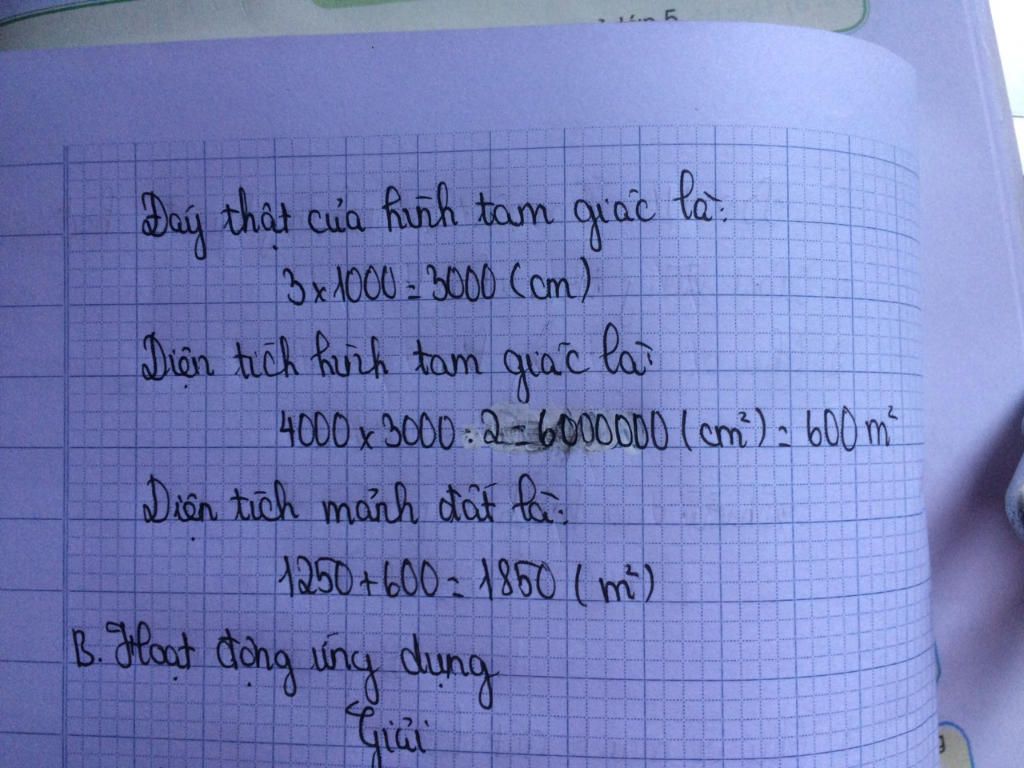 lớp 5
Đáy thật của hình tam giác là:
3 x 1000 = 3000 (cm)
Diện tích hình tam giác là:
4000 x 3000 : 2 = 6000000 (cm²) = 600 m²
Diện tích mảnh đất là:
1250 + 600 = 1850 (m²)
B. Hoạt động ứng dụng
Giải